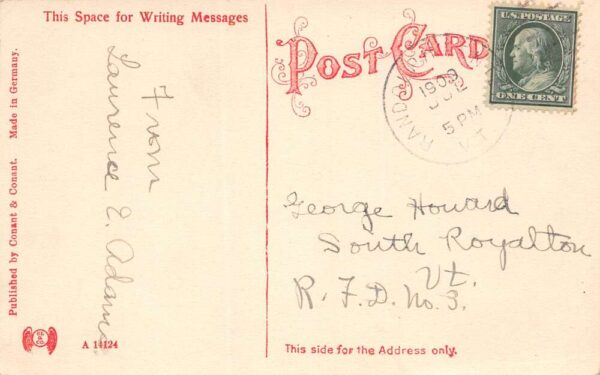 This Space for Writing Messages
From
Laurence E. Adams
Published by Conant & Conant. Made in Germany.
A 14124
POST CARD
RANDO
1909
12
5 PM
VT.
U.S. POSTAGE
ONE CENT
George Howard
South Royalton
Vt.
R. F. D. No. 3.
This side for the Address only.